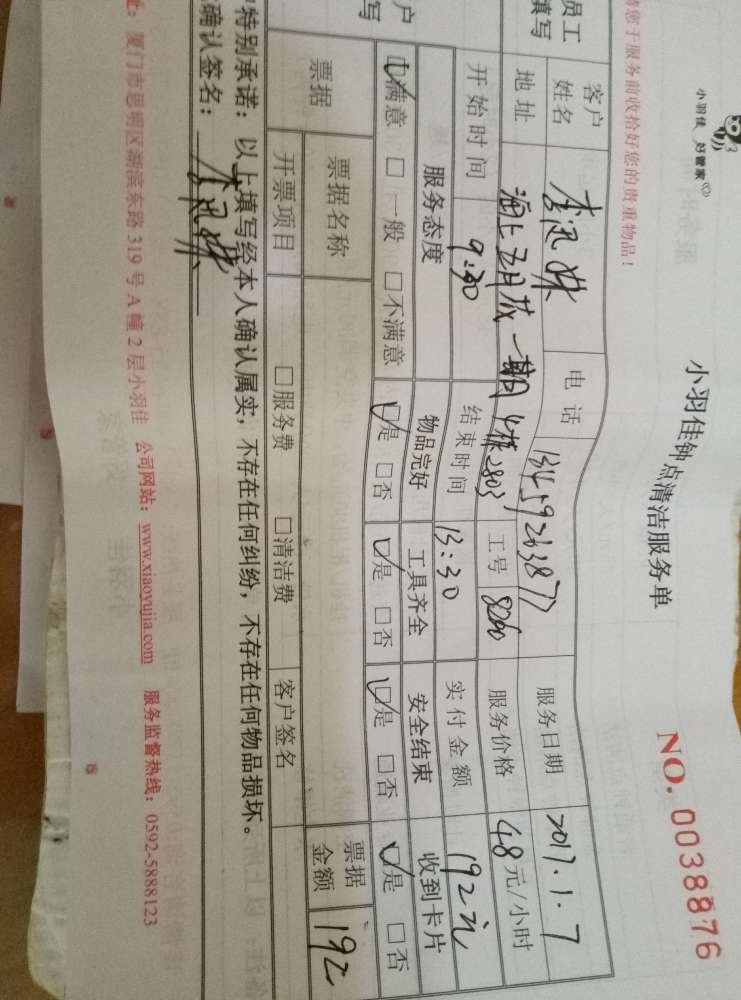 小羽佳 好管家
小羽佳钟点清洁服务单
NO. 0038876
请您于服务前收拾好您的贵重物品!
员工
填写
客户
姓名
电话
服务日期 2017.1.7
地址 海上五月花一期4栋2803 工号 8260 服务价格 48元/小时
开始时间 9:30 结束时间 13:30 实付金额 192元
户
写
服务态度 物品完好 工具齐全 安全结束 收到卡片
☑满意 □一般 □不满意 ☑是 □否 ☑是 □否 ☑是 □否 ☑是 □否
票据 票据名称 票据金额 192
开票项目 □服务费 □清洁费 客户签名
特别承诺:以上填写经本人确认属实,不存在任何纠纷,不存在任何物品损坏。
确认签名:
址:厦门市思明区湖滨东路319号A幢2层小羽佳 公司网站:www.xiaoyujia.com 服务监督热线:0592-5888123